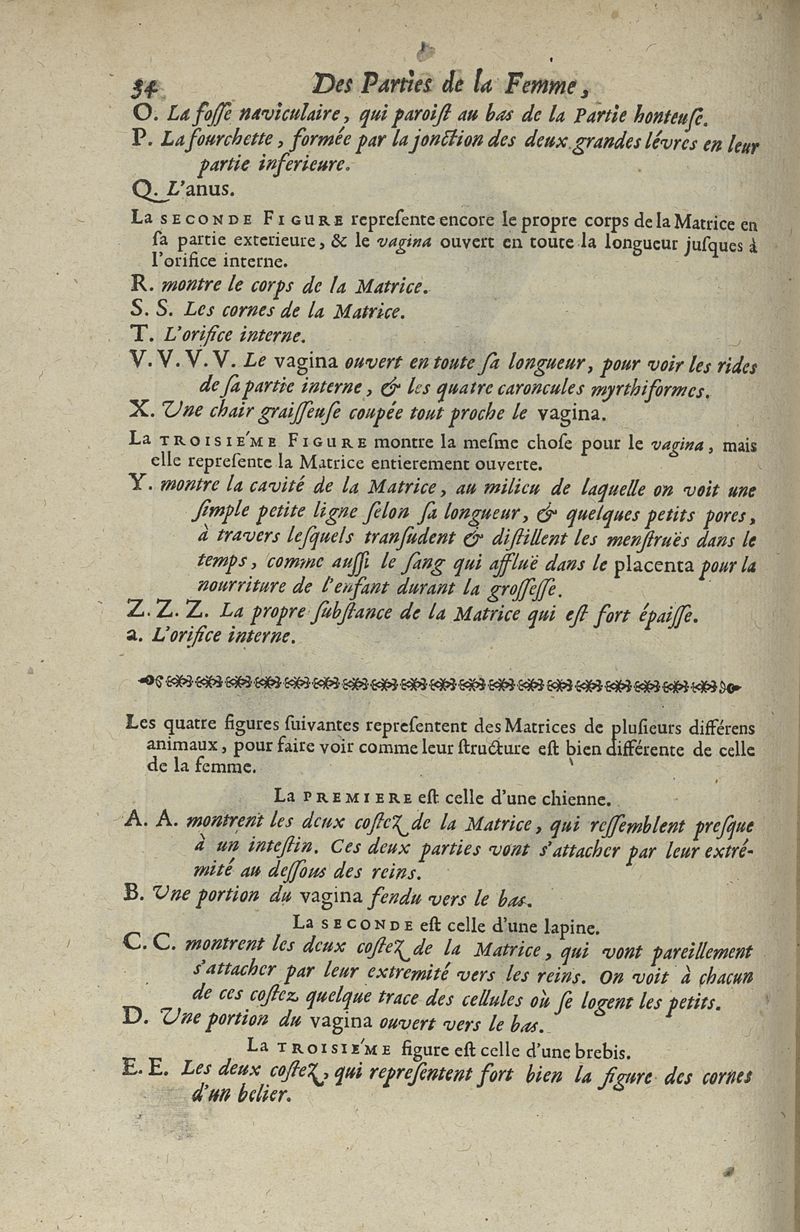 54 Des Parties de la Femme,
O. La fosse naviculaire, qui paroiſt au bas de la Partie honteuſe.
P. La fourchette, formée par la jonction des deux grandes lévres en leur
partie inferieure.
Q. L'anus.
La SECONDE FIGURE repreſente encore le propre corps de la Matrice en
ſa partie exterieure, & le vagina ouvert en toute la longueur juſques à
l'orifice interne.
R. montre le corps de la Matrice.
S. S. Les cornes de la Matrice.
T. L'orifice interne.
V. V. V. V. Le vagina ouvert en toute ſa longueur, pour voir les rides
de ſa partie interne, & les quatre caroncules myrthiformes.
X. Une chair graiſſeuſe coupée tout proche le vagina.
La TROISIE'ME FIGURE montre la meſme choſe pour le vagina, mais
elle repreſente la Matrice entierement ouverte.
Y. montre la cavité de la Matrice, au milieu de laquelle on voit une
ſimple petite ligne ſelon ſa longueur, & quelques petits pores,
à travers leſquels tranſudent & diſtillent les menſtruës dans le
temps, comme auſſi le ſang qui affluë dans le placenta pour la
nourriture de l'enfant durant la groſſeſſe.
Z. Z. Z. La propre ſubſtance de la Matrice qui eſt fort épaiſſe.
a. L'orifice interne.
Les quatre figures ſuivantes repreſentent des Matrices de pluſieurs différens
animaux, pour faire voir comme leur ſtructure eſt bien différente de celle
de la femme.
La PREMIERE eſt celle d'une chienne.
A. A. montrent les deux coſtez de la Matrice, qui reſſemblent preſque
à un inteſtin. Ces deux parties vont s'attacher par leur extré-
mité au deſſous des reins.
B. Une portion du vagina fendu vers le bas.
La SECONDE eſt celle d'une lapine.
C. C. montrent les deux coſtez de la Matrice, qui vont pareillement
s'attacher par leur extremité vers les reins. On voit à chacun
de ces coſtez quelque trace des cellules où ſe logent les petits.
D. Une portion du vagina ouvert vers le bas.
La TROISIE'ME figure eſt celle d'une brebis.
E. E. Les deux coſtez, qui repreſentent fort bien la figure des cornes
d'un belier.